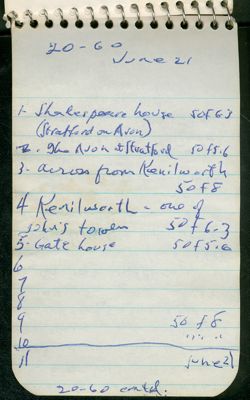 20-60
June 21
1- Shakespeare house 50 f6.3
(Stratford on Avon)
2. The Avon at Stratford 50 f5.6
3- across from Kenilworth
50 f 8
4 Kenilworth - one of
John's towers 50 f 6.3
5- Gate house 50 f 5.6
6
7
8
9 50 f 8
10 " " "
11 June 21
20-60 contd.